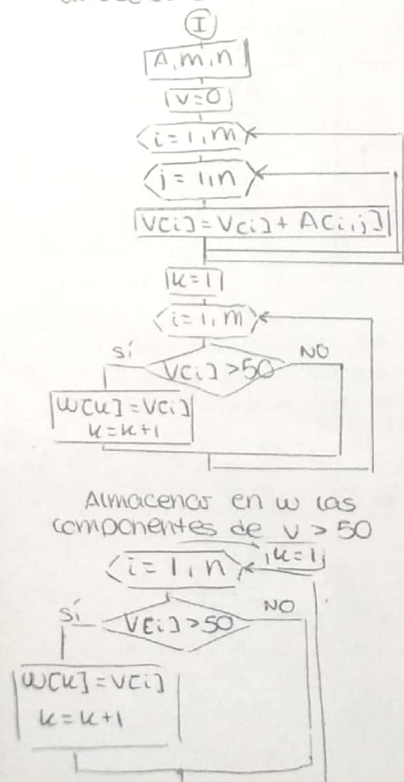 I
A, m, n
V=0
i = 1, m
j = 1, n
V[i] = V[i] + A[i,j]
k=1
i = 1, m
SÍ
V[i] > 50
NO
W[k] = V[i]
k=k+1
Almacenar en w las
componentes de v > 50
k=1
i = 1, n
SÍ
V[i] > 50
NO
W[k] = V[i]
k = k+1